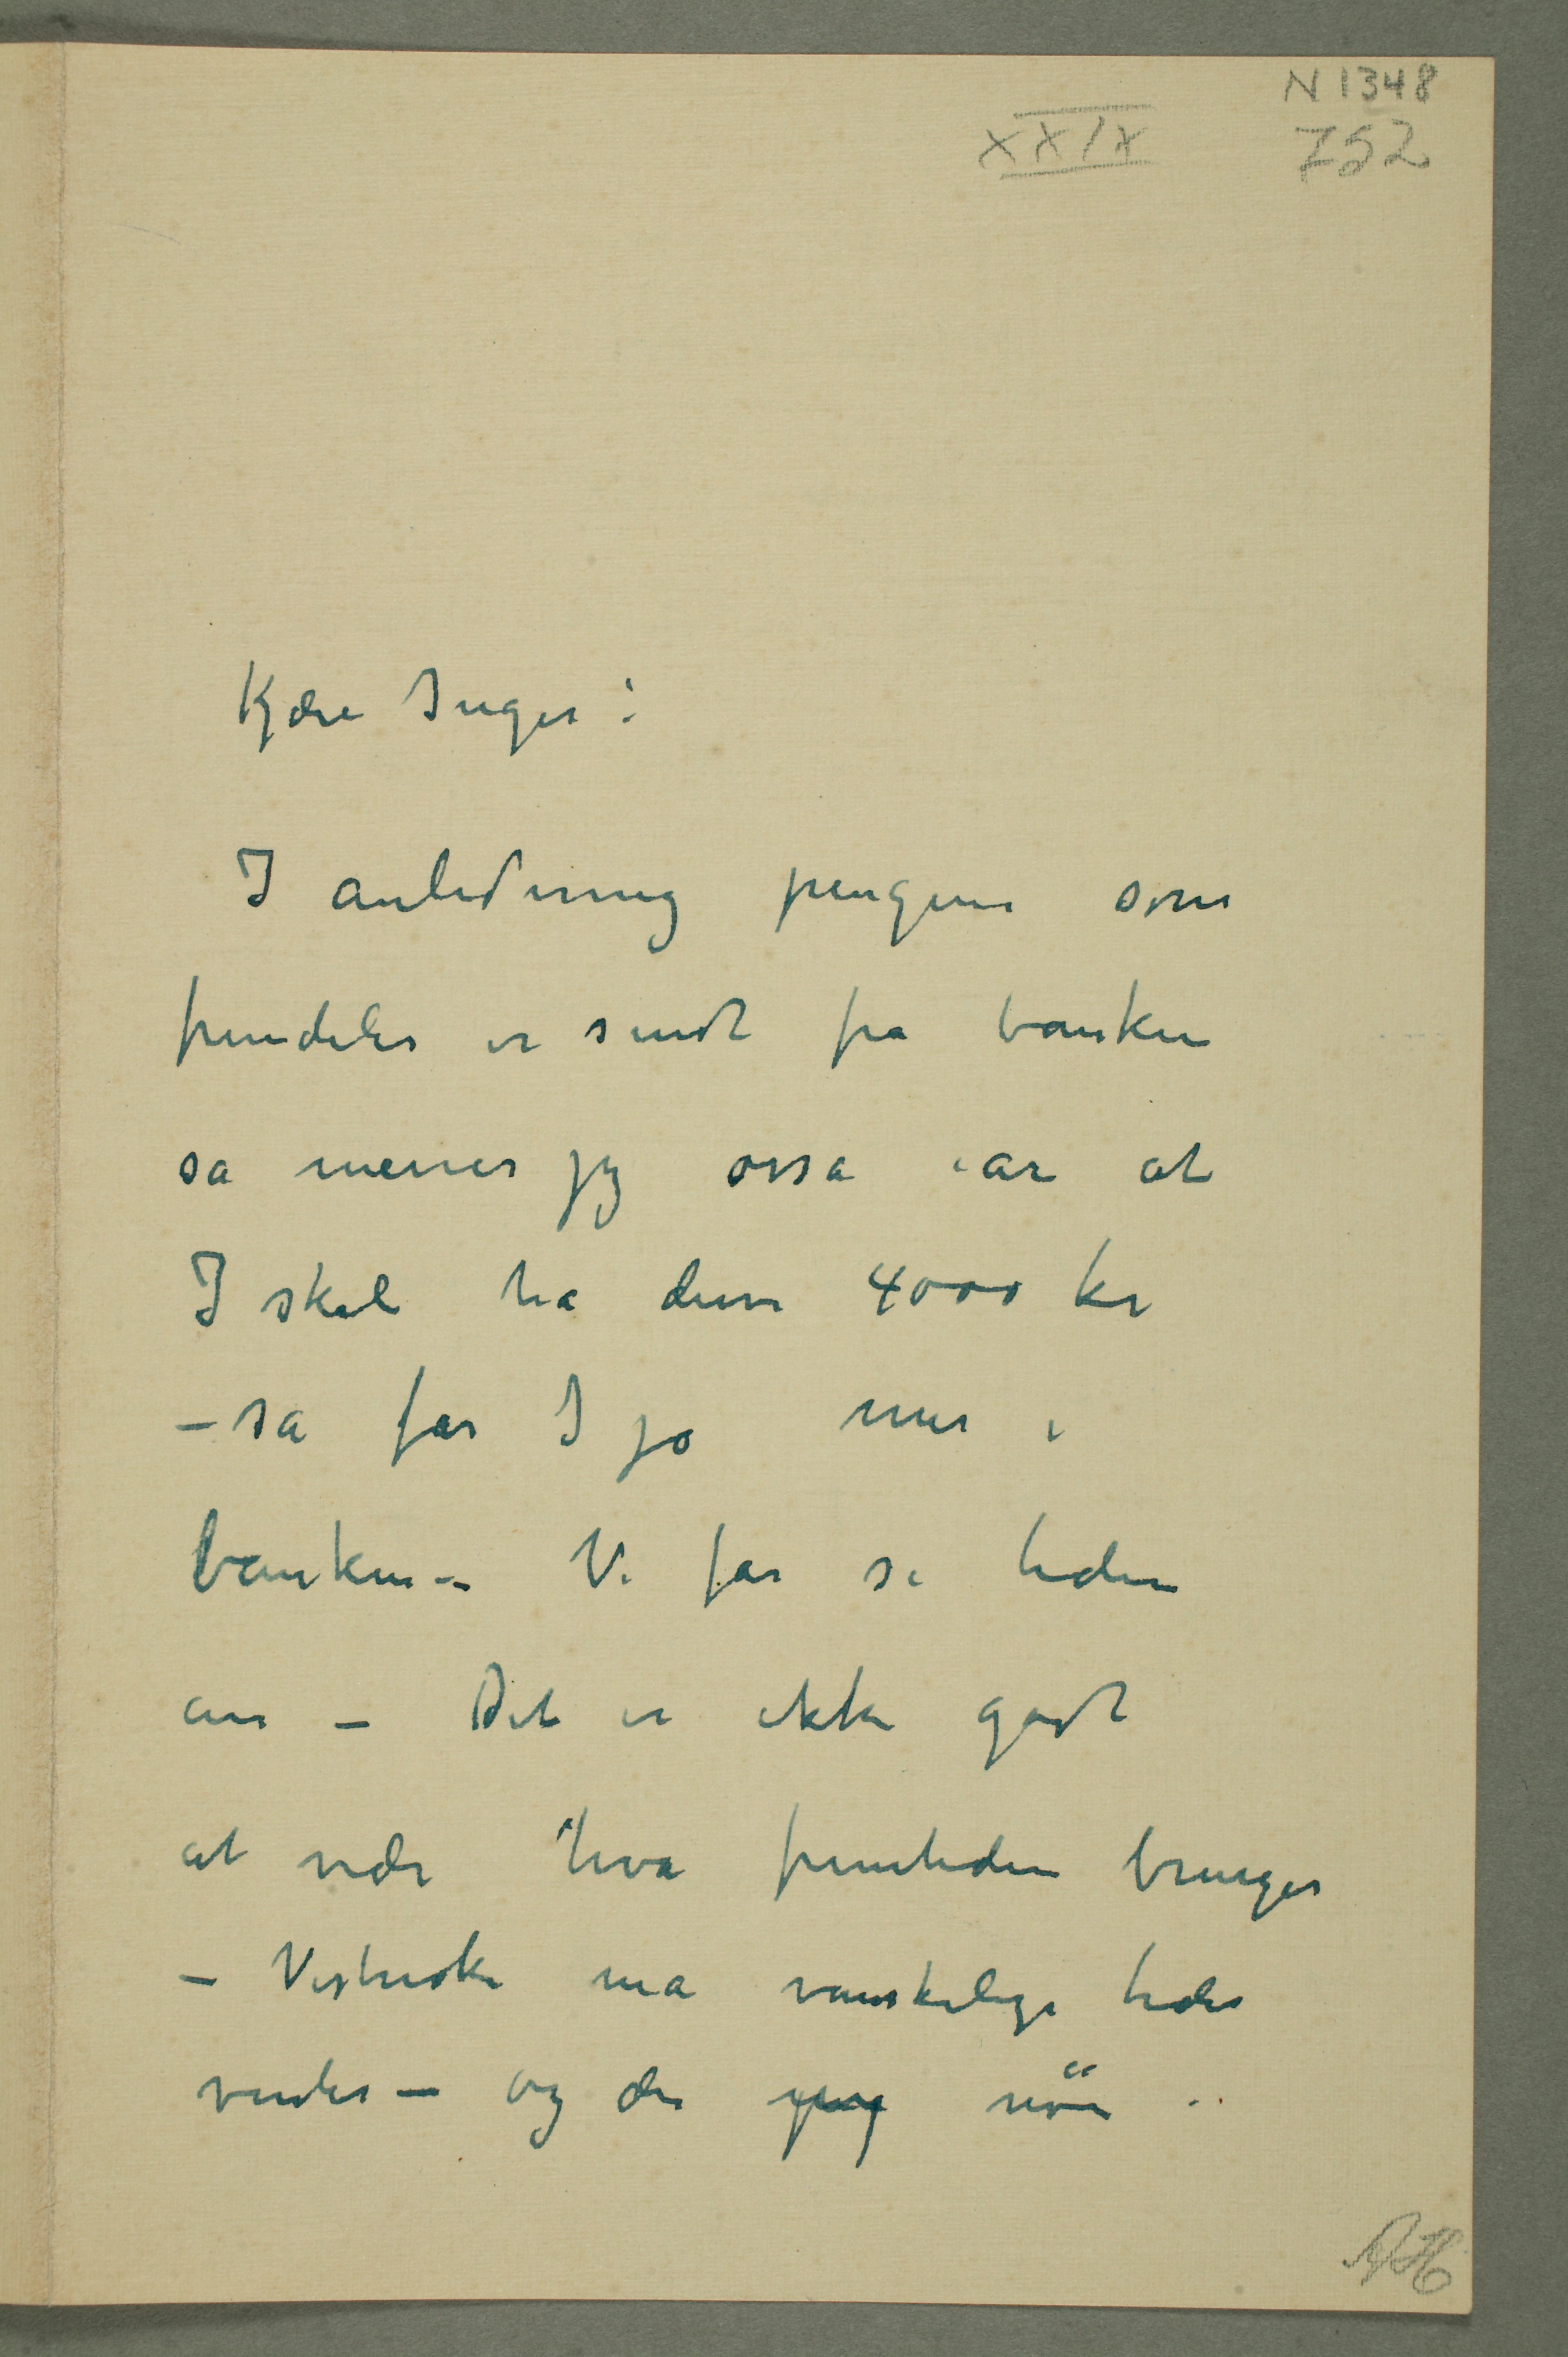 N 1348
XXIX 752
Kjære Inger!
I anledning pengene som
fremdeles er sendt fra banken
så mener jeg osså iår at
I skal ha denne 4000 kr
– så får I jo mer i
banken – Vi får se tiden
an – Det er ikke godt
at vide hva fremtiden bringer
– Vistnok må vanskelige tider
ventes – og der nöie